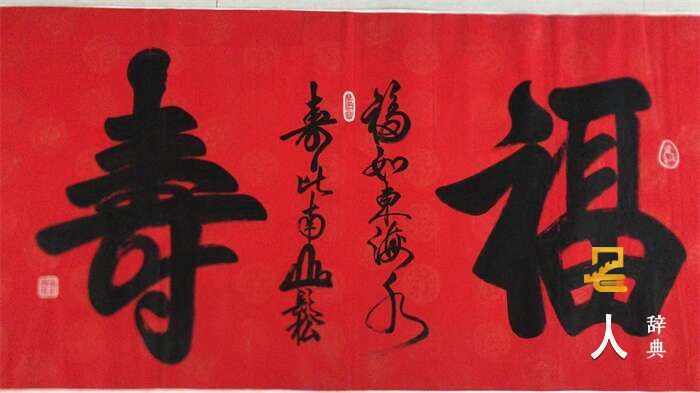 福
福如東海水
壽比南山松
壽
名人
辞典